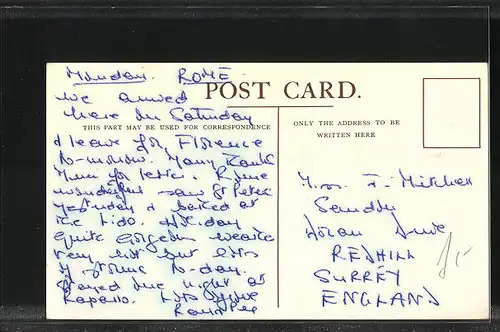 Monday. ROME
We arrived
here on Saturday
POST CARD.
THIS PART MAY BE USED FOR CORRESPONDENCE
& leave for Florence
to-morrow. Many thanks
Mum for letter. Rome
wonderful - saw St Peters
yesterday & bathed at
the Lido. Holiday
quite gorgeous weather
very hot but lots
of to-day.
Stayed one night at
Rapallo. Lots of love
ONLY THE ADDRESS TO BE
WRITTEN HERE
F. Mitchell
Drive
REDHILL
SURREY
ENGLAND